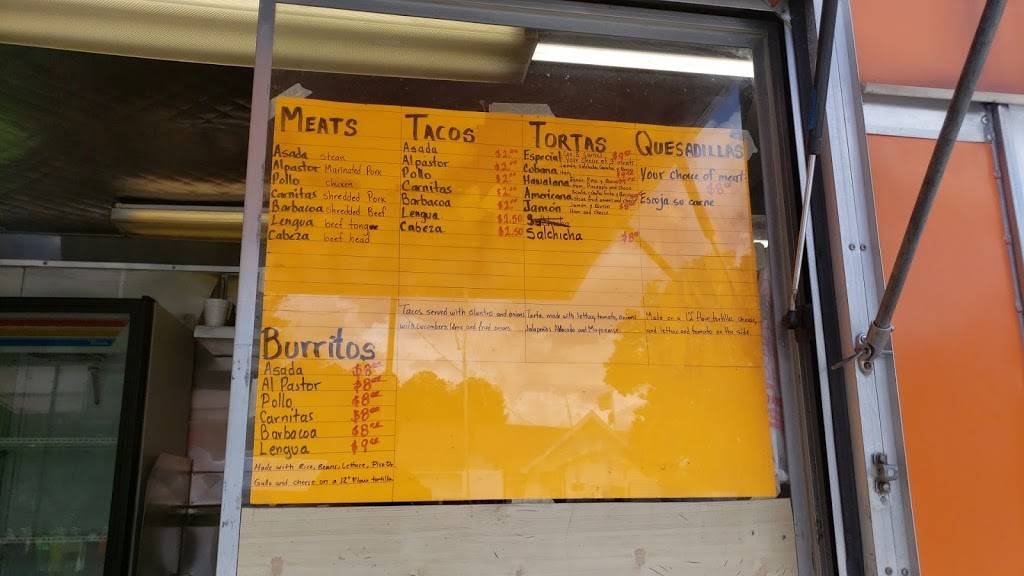 MEATS
Asada steak
Alpastor Marinated Pork
Pollo chicken
Carnitas Shredded Pork
Barbacoa Shredded Beef
Lengua beef tongue
Cabeza beef head
TACOS
Asada $2.00
Alpastor $2.00
Pollo $2.00
Carnitas $2.00
Barbacoa $2.00
Lengua $2.50
Cabeza $2.50
Tacos served with cilantro and onions
with cucumbers, limes and fried onions
TORTAS
Especial your choice of 3 meats $9.00
Cobana
Hawaiana
Americana
Jamón Ham and cheese
Salchicha $8.00
Torta made with lettuce, tomato, onions
Jalapeños, Avocado and Mayonnaise
QUESADILLAS
Your choice of meat
$8.00
Escoja su carne
Made on a 12" flour tortilla, cheese,
and lettuce and tomato on the side
Burritos
Asada $8.00
Al Pastor $8.00
Pollo $8.00
Carnitas $8.00
Barbacoa $8.00
Lengua $9.00
Made with Rice, Beans, Lettuce, Pico De
Gallo and cheese on a 12" Flour tortilla